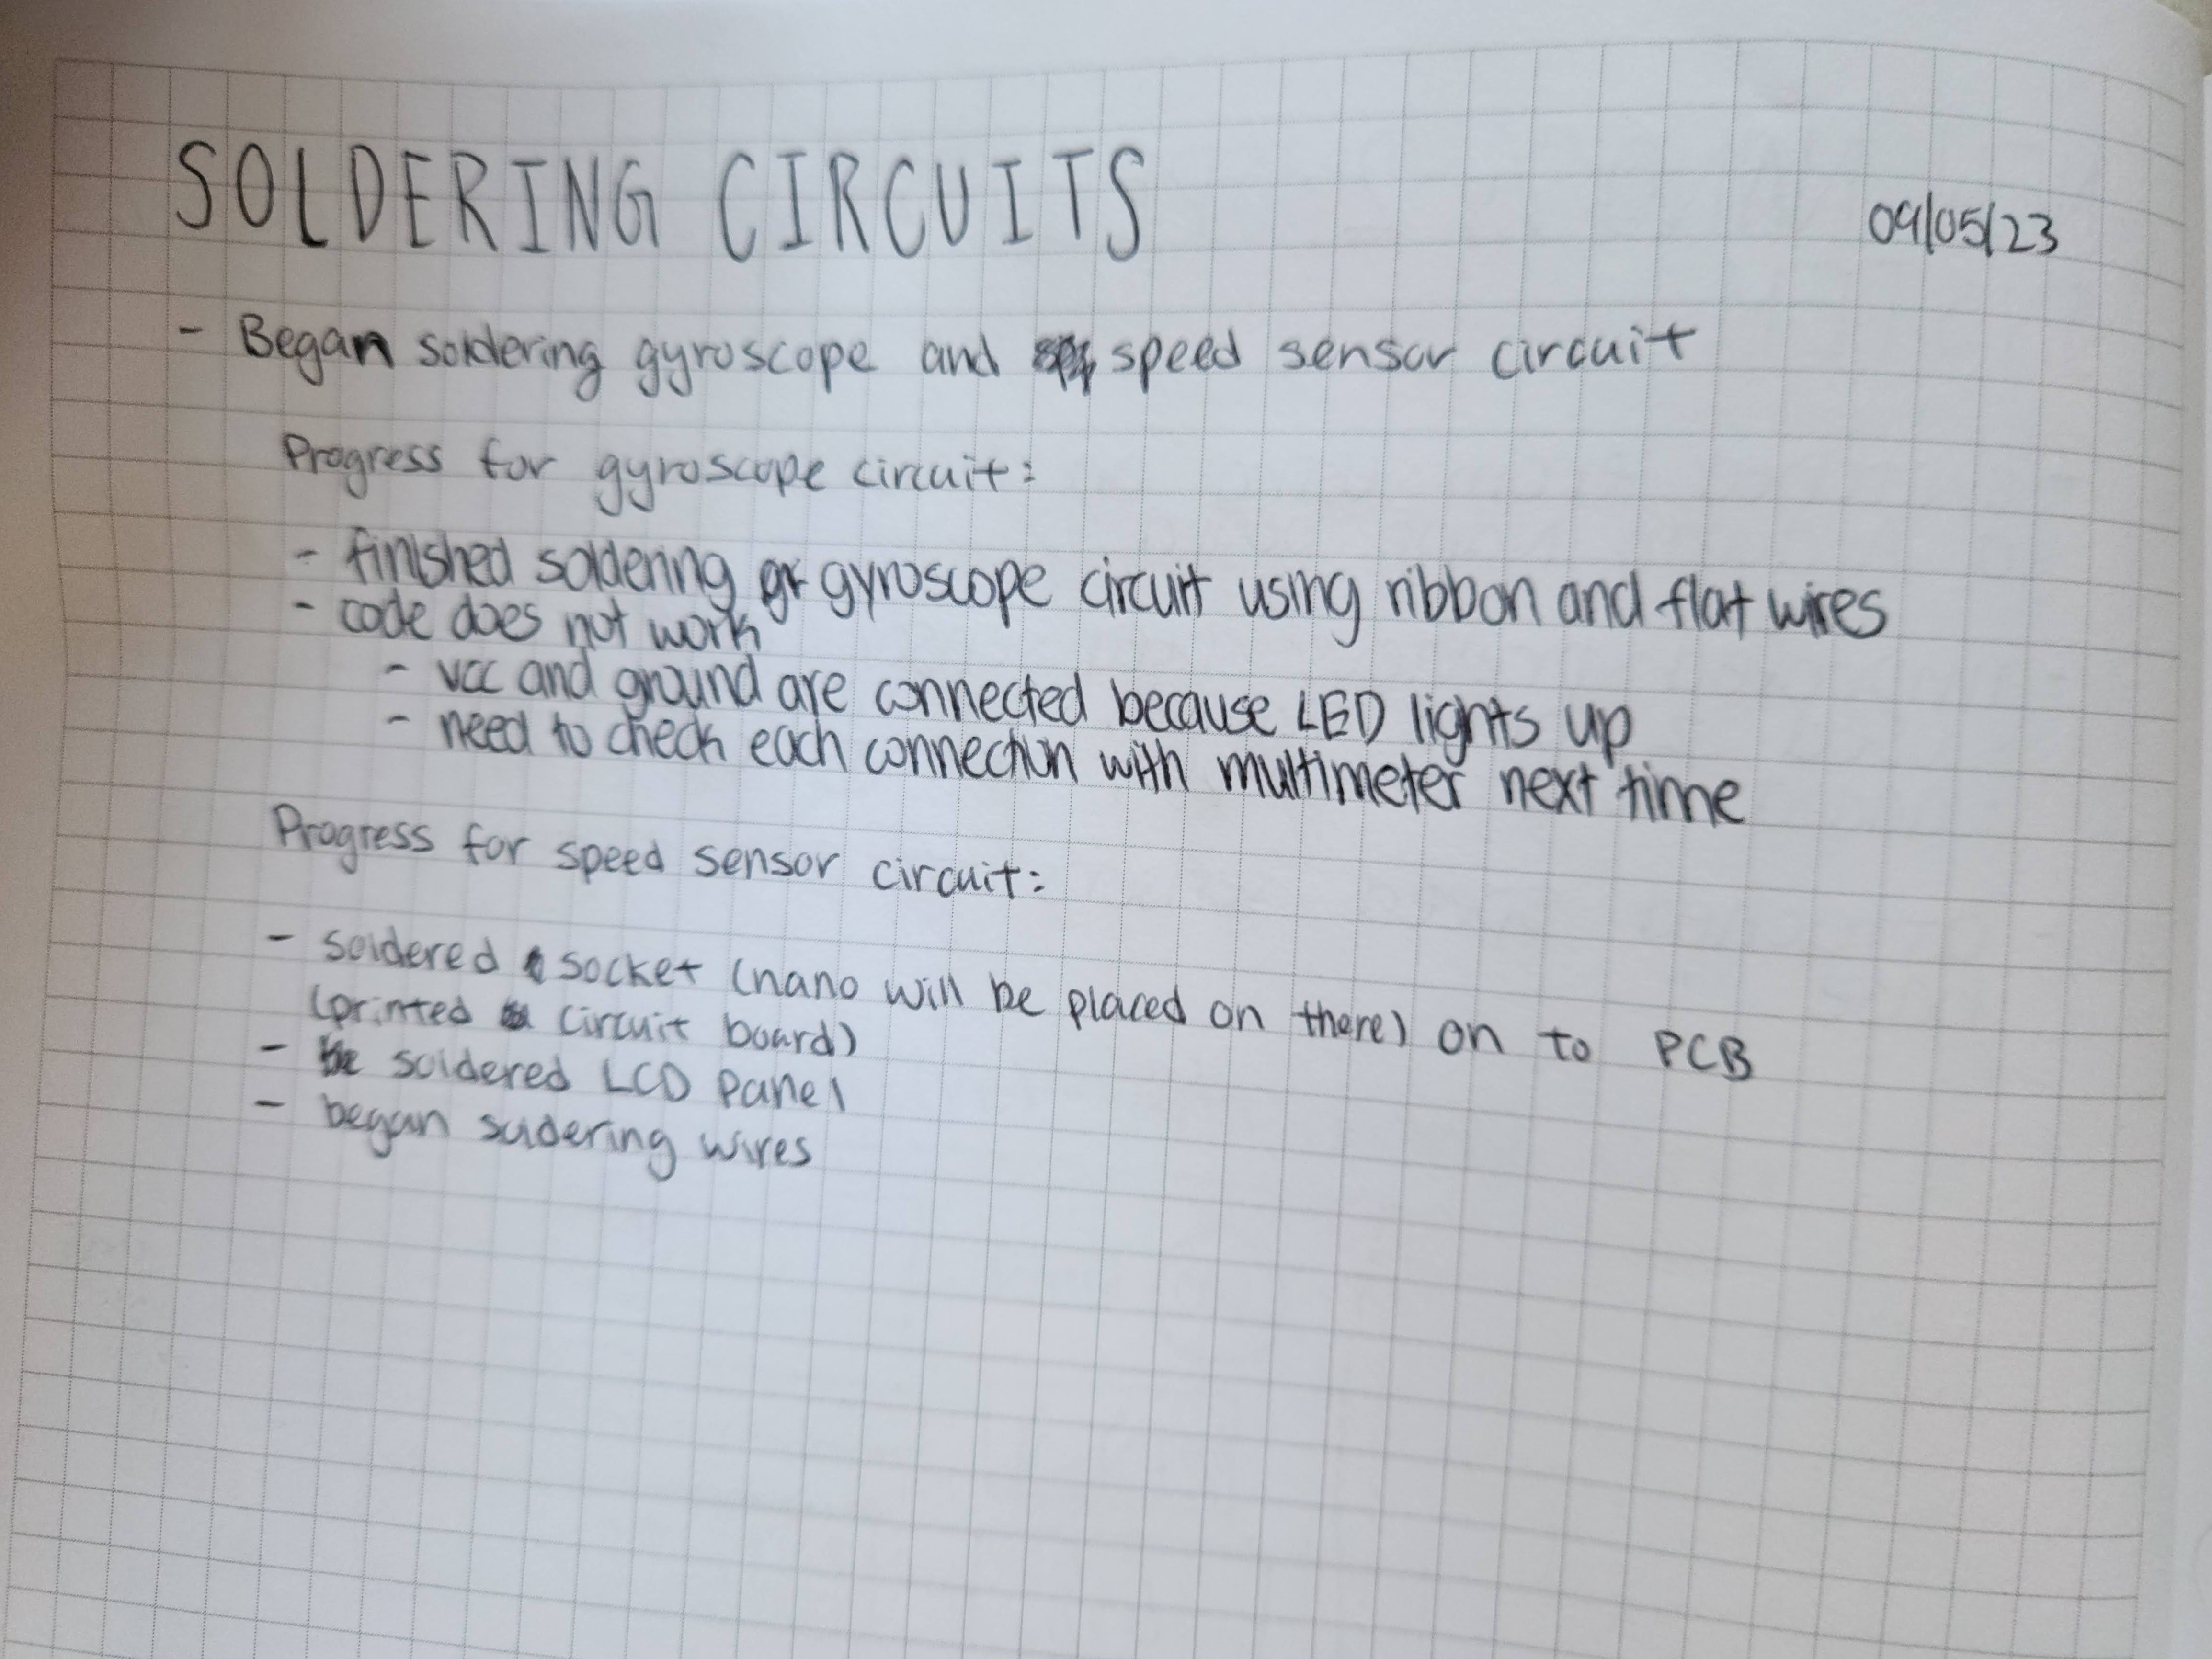 SOLDERING CIRCUITS
09/05/23
- Began soldering gyroscope and speed sensor circuit
Progress for gyroscope circuit:
- finished soldering gyroscope circuit using ribbon and flat wires
- code does not work
- vcc and ground are connected because LED lights up
- need to check each connection with multimeter next time
Progress for speed sensor circuit:
- soldered socket (nano will be placed on there) on to PCB
(printed circuit board)
- soldered LCD panel
- began soldering wires